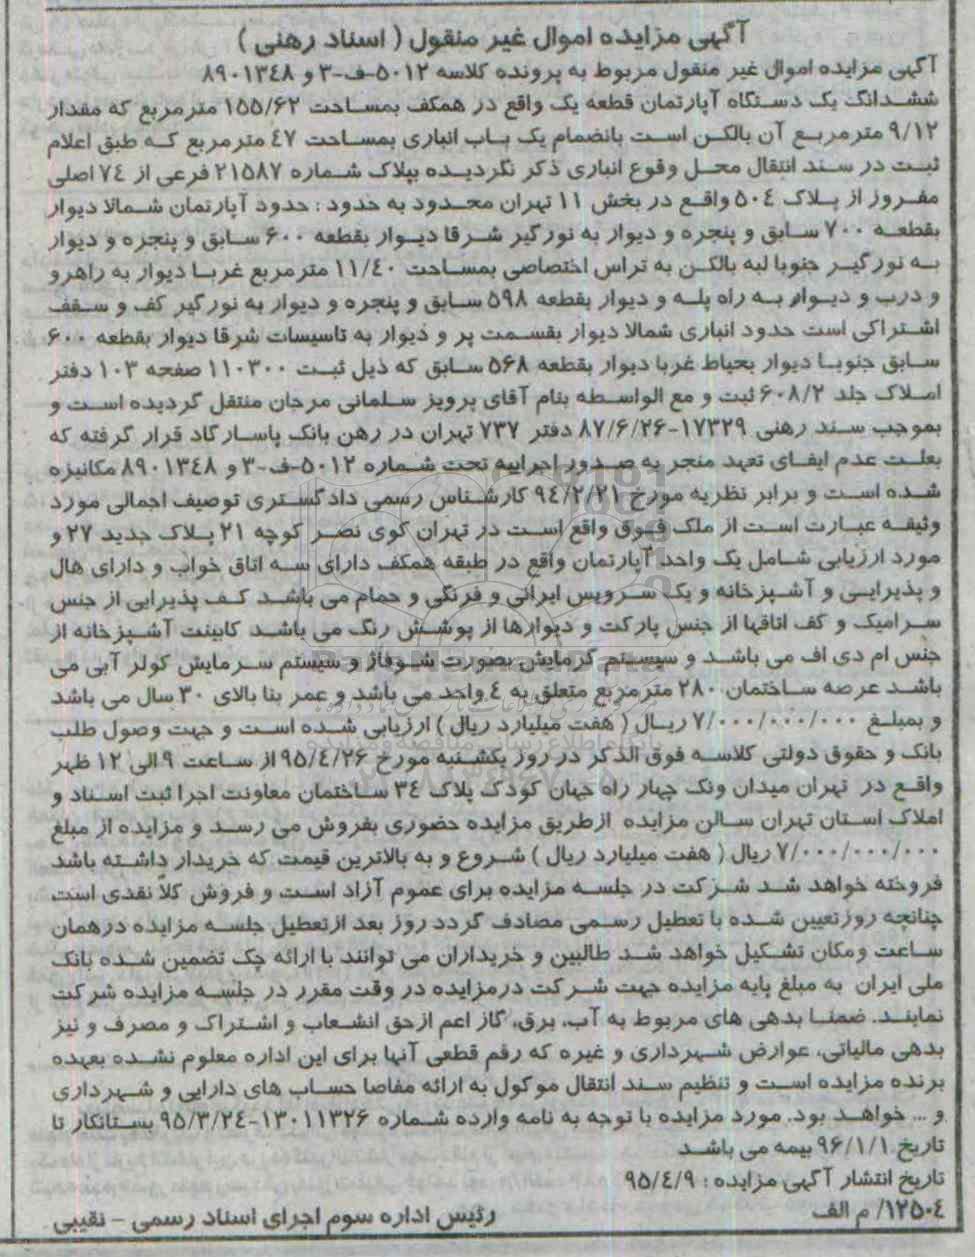 آگهی مزایده اموال غیر منقول ( اسناد رهنی )
آگهی مزایده اموال غیر منقول مربوط به پرونده کلاسه ۵۰۱۲-ف-۳ و ۸۹۰۱۳۴۸
ششدانگ یک دستگاه آپارتمان قطعه یک واقع در همکف بمساحت ۱۵۵/۶۲ مترمربع که مقدار
۹/۱۲ مترمربع آن بالکن است بانضمام یک باب انباری بمساحت ۴۷ مترمربع که طبق اعلام
ثبت در سند انتقال محل وقوع انباری ذکر نگردیده بپلاک شماره ۲۱۵۸۷ فرعی از ۷۴ اصلی
مفروز از پلاک ۵۰۴ واقع در بخش ۱۱ تهران محدود به حدود : حدود آپارتمان شمالا دیوار
بقطعه ۷۰۰ سابق و پنجره و دیوار به نورگیر شرقا دیوار بقطعه ۶۰۰ سابق و پنجره و دیوار
به نورگیر جنوبا لبه بالکن به تراس اختصاصی بمساحت ۱۱/۴۰ مترمربع غربا دیوار به راهرو
و درب و دیوار به راه پله و دیوار بقطعه ۵۹۸ سابق و پنجره و دیوار به نورگیر کف و سقف
اشتراکی است حدود انباری شمالا دیوار بقسمت پر و دیوار به تاسیسات شرقا دیوار بقطعه ۶۰۰
سابق جنوبا دیوار بحیاط غربا دیوار بقطعه ۵۶۸ سابق که ذیل ثبت ۱۱۰۳۰۰ صفحه ۱۰۳ دفتر
املاک جلد ۶۰۸/۲ ثبت و مع الواسطه بنام آقای پرویز سلمانی مرجان منتقل گردیده است و
بموجب سند رهنی ۱۷۳۲۹-۸۷/۶/۲۶ دفتر ۷۳۷ تهران در رهن بانک پاسارگاد قرار گرفته که
بعلت عدم ایفای تعهد منجر به صدور اجراییه تحت شماره ۵۰۱۲-ف-۳ و ۸۹۰۱۳۴۸ مکانیزه
شده است و برابر نظریه مورخ ۹۴/۲/۲۱ کارشناس رسمی دادگستری توصیف اجمالی مورد
وثیقه عبارت است از ملک فوق واقع است در تهران کوی نصر کوچه ۲۱ پلاک جدید ۲۷ و
مورد ارزیابی شامل یک واحد آپارتمان واقع در طبقه همکف دارای سه اتاق خواب و دارای هال
و پذیرایی و آشپزخانه و یک سرویس ایرانی و فرنگی و حمام می باشد کف پذیرایی از جنس
سرامیک و کف اتاقها از جنس پارکت و دیوارها از پوشش رنگ می باشد کابینت آشپزخانه از
جنس ام دی اف می باشد و سیستم گرمایش بصورت شوفاژ و سیستم سرمایش کولر آبی می
باشد عرصه ساختمان ۲۸۰ مترمربع متعلق به ٤ واحد می باشد و عمر بنا بالای ۳۰ سال می باشد
و بمبلغ ۷/۰۰۰/۰۰۰/۰۰۰ ریال ( هفت میلیارد ریال ) ارزیابی شده است و جهت وصول طلب
بانک و حقوق دولتی کلاسه فوق الذکر در روز یکشنبه مورخ ۹۵/٤/۲۶ از ساعت ۹ الی ۱۲ ظهر
واقع در تهران میدان ونک چهار راه جهان کودک پلاک ۳٤ ساختمان معاونت اجرا ثبت اسناد و
املاک استان تهران سالن مزایده ازطریق مزایده حضوری بفروش می رسد و مزایده از مبلغ
۷/۰۰۰/۰۰۰/۰۰۰ ریال ( هفت میلیارد ریال ) شروع و به بالاترین قیمت که خریدار داشته باشد
فروخته خواهد شد شرکت در جلسه مزایده برای عموم آزاد است و فروش کلا نقدی است
چنانچه روز تعیین شده با تعطیل رسمی مصادف گردد روز بعد ازتعطیل جلسه مزایده درهمان
ساعت ومکان تشکیل خواهد شد طالبین و خریداران می توانند با ارائه چک تضمین شده بانک
ملی ایران به مبلغ پایه مزایده جهت شرکت درمزایده در وقت مقرر در جلسه مزایده شرکت
نمایند. ضمنا بدهی های مربوط به آب، برق، گاز اعم ازحق انشعاب و اشتراک و مصرف و نیز
بدهی مالیاتی، عوارض شهرداری و غیره که رقم قطعی آنها برای این اداره معلوم نشده بعهده
برنده مزایده است و تنظیم سند انتقال موکول به ارائه مفاصا حساب های دارایی و شهرداری
و ... خواهد بود. مورد مزایده با توجه به نامه وارده شماره ۱۳۰۱۱۳۲۶-۹۵/۳/۲٤ بستانکار تا
تاریخ ۹۶/۱/۱ بیمه می باشد
تاریخ انتشار آگهی مزایده : ۹۵/٤/۹
۱۲۵۰٤/ م الف
رئیس اداره سوم اجرای اسناد رسمی - نقیبی